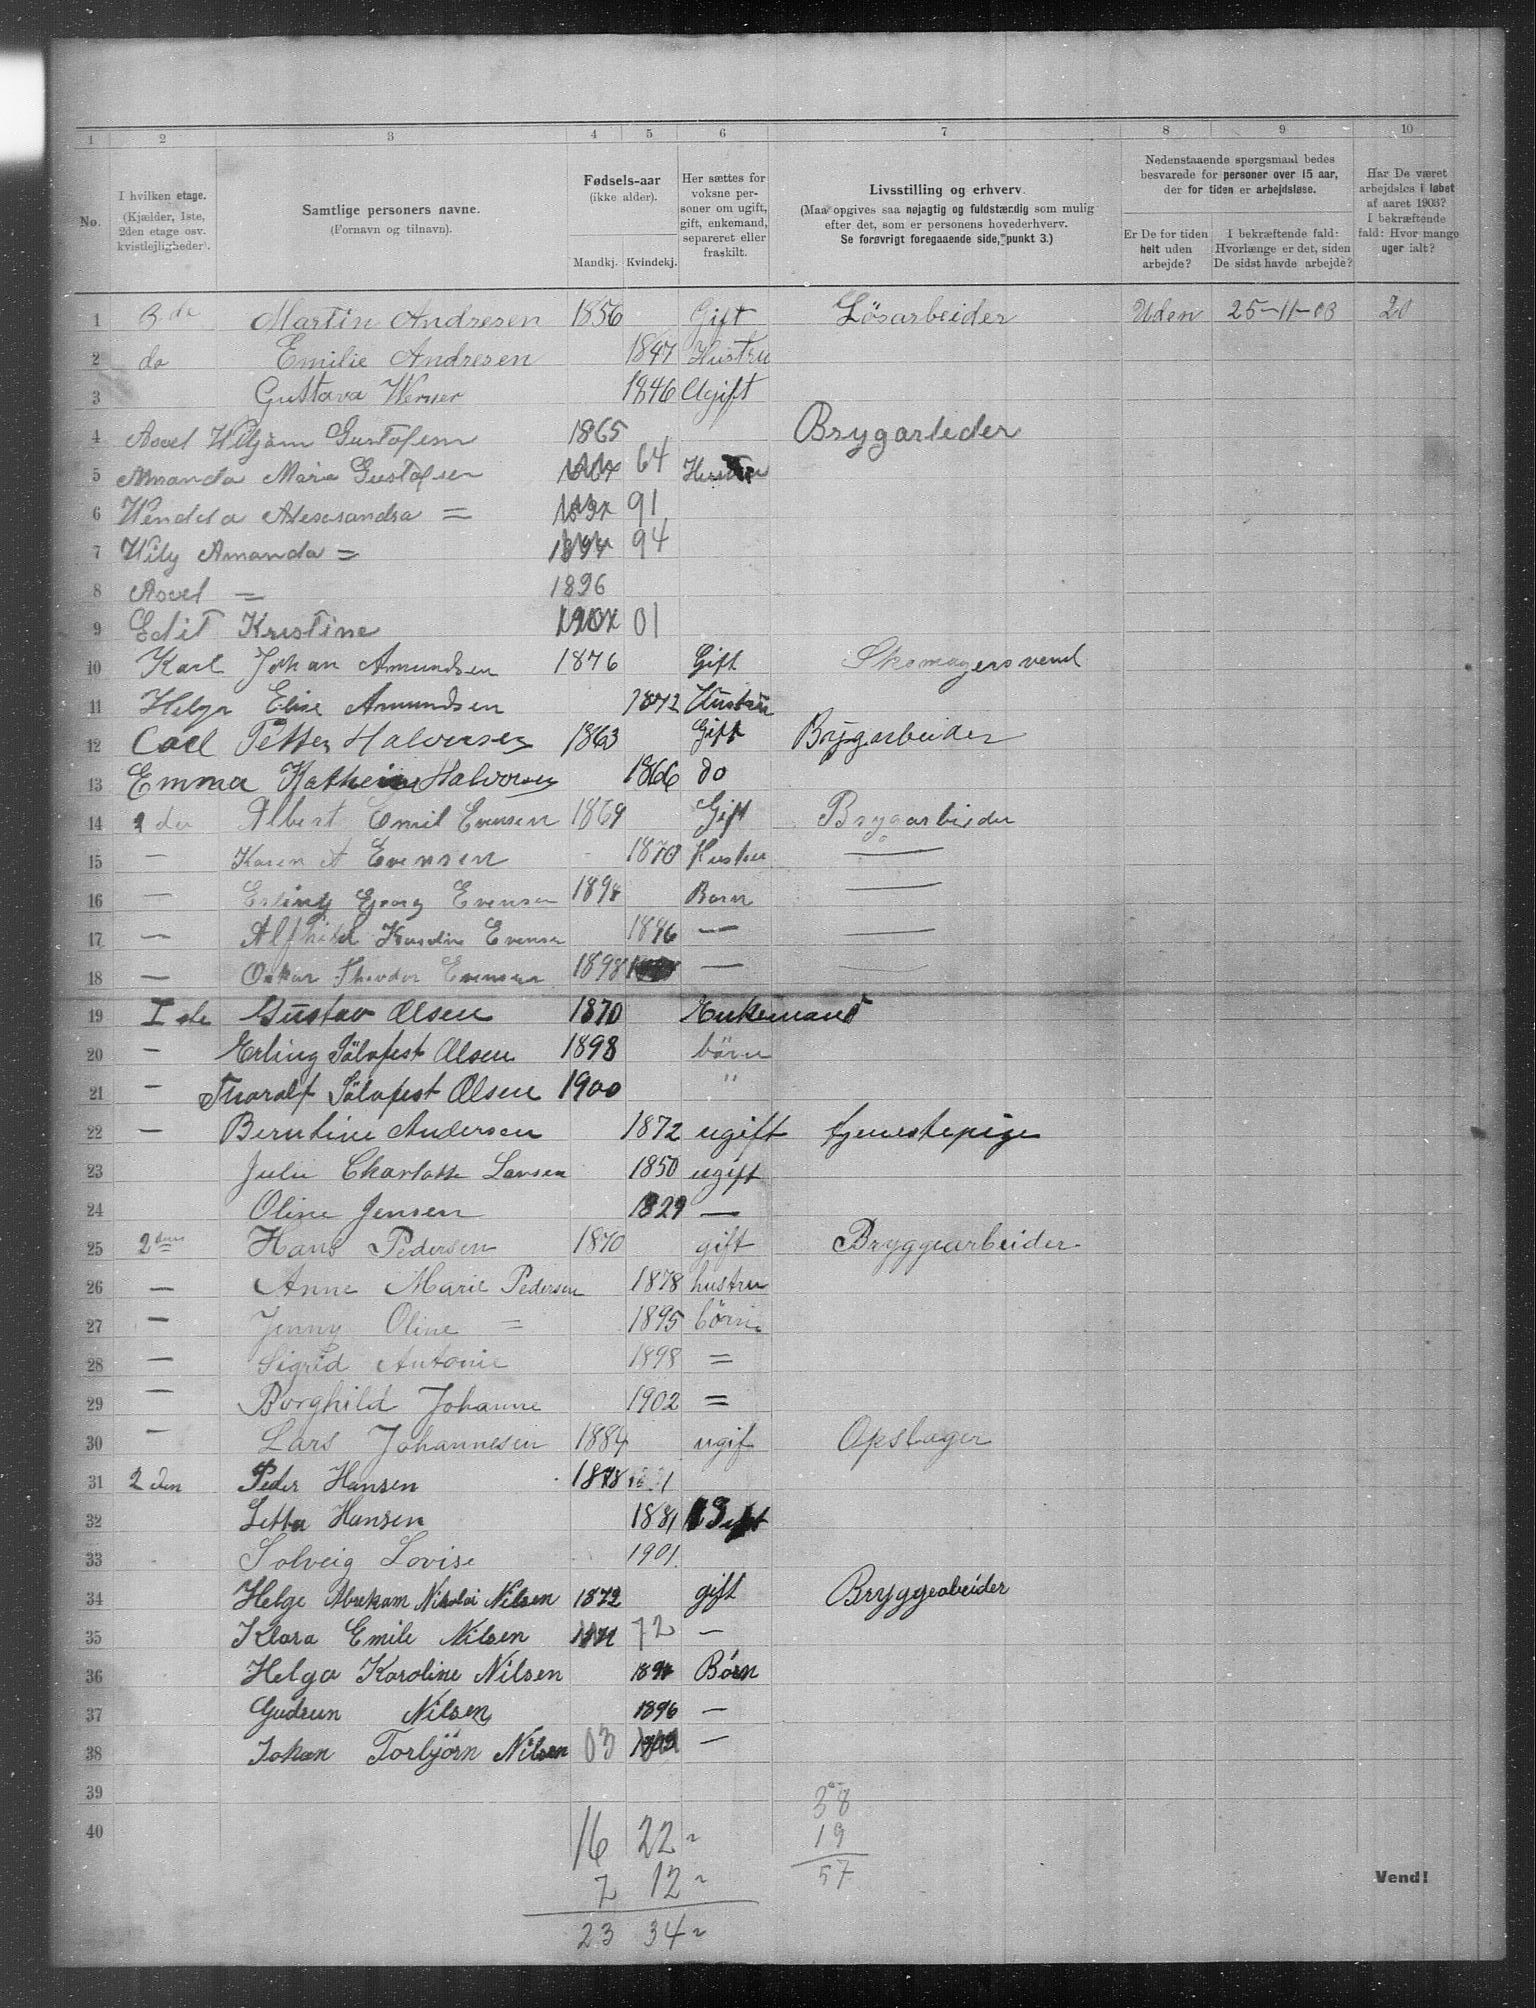 1 2 3 4 5 6 7 8 9 10
No.
I hvilken etage. (Kjælder, 1ste, 2den etage osv. kvistlejligheder).
Samtlige personers navne. (Fornavn og tilnavn).
Fødsels-aar (ikke alder). Mandkj. Kvindekj.
Her sættes for voksne per- soner om ugift, gift, enkemand, separeret eller fraskilt.
Livsstilling og erhverv. (Maa opgives saa nøjagtig og fuldstærdig som mulig efter det, som er personens hovederhverv. Se forøvrigt foregaaende side, punkt 3.)
Nedenstaaende spørgsmaal bedes besvarede for personer over 15 aar, der for tiden er arbejdsløse.
Er De for tiden helt uden arbejde?
I bekræftende fald: Hvorlænge er det, siden De sidst havde arbejde?
Har De været arbejdsløs i løbet af aaret 1903? I bekræftende fald: Hvor mange uger ialt?
1 3de Martin Andresen 1856 Gift Lösarbeider Uden 25-11-03 20
2 do Emilie Andresen 1847 Hustru
3 Gustava Werner 1846 Ugift
4 Axvel Wiljam Gustafsen 1865 Brygarleder
5 Amanda Maria Gustafsen 64 Hustru
6 Wendela Alexsandra = 91
7 Wily Amanda = 1894 94
8 Axvel = 1896
9 Edit Kristine 01
10 Karl Johan Amundsen 1876 Gift Skomagersvend
11 Helga Elise Amundsen 1872 Hustru
12 Carl Petter Halvorsen 1863 Gift Brygarbeider
13 Emma Kathrine Halvorsen 1866 do
14 2den Albert Emil Evensen 1869 Gift Brygarbeider
15 — Karen A Evensen 1870 Hustru —
16 — Erling Georg Evensen 1894 Barn —
17 — Alfhild Kristine Evensen 1896 — —
18 — Oskar Theodor Evensen 1898 — —
19 I ste Gustav Olsen 1870 Enkemand
20 — Erling Sölvfest Olsen 1898 börn
21 — Thoralf Sölvfest Olsen 1900 "
22 — Berntine Andersen 1872 ugift tjenestepige
23 Julie Charlotte Larsen 1850 ugift
24 Oline Jensen 1829 —
25 2den Hans Pedersen 1870 gift Bryggearbeider
26 — Anne Marie Pedersen 1878 hustru
27 — Jenny Oline = 1895 börn
28 — Sigrid Antonie 1898 =
29 — Borghild Johanne 1902 =
30 — Lars Johannesen 1884 ugif Opstager
31 2den Peder Hansen 1878
32 Letta Hansen 1881 Gift
33 Solveig Lovise 1901
34 Helge Abreham Nikolai Nilsen 1872 gift Bryggeabeider
35 Klara Emile Nilsen 72 —
36 Helga Karoline Nilsen 1894 Börn
37 Gudrun Nilsen 1896 —
38 Johan Torbjörn Nilsen 03 —
39 38
40 16 22 " 19
7 12 " 57
23 34 "
Vend!